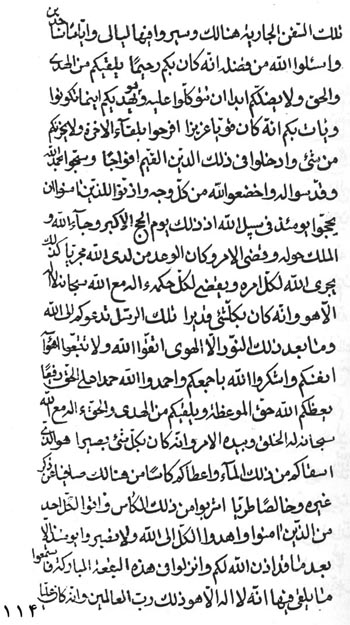 تلك السفن الجارية هنالك وسيروا فيها ليالى وايامًا
واسئلوا الله من فضله انه كان بكم رحيما يلقيكم من الهدى
والحق ولا يضلكم ابدا ان توكلوا عليه ويهديكم اينما تكونوا
ويات بكم انه كان قويا عزيزا افرحوا بلقاء الاخرة ولا يحزنكم
من شئ وادخلوا فى ذلك الدين القيم افواجًا وسبحوا الله
وقدسوا له واخضعوا لله من كل وجه واذنوا للذين
يحجوا يومئذ فى سبيل الله اذ ذلك يوم الحج الاكبر وجاء الله و
الملك حوله وقضى الامر وكان الوعد من لدى الله
يجرى الله لكل امره ويقضى لكل حكمه اله مع الله سبحانه لا اله
الا هو وانه كان بكلشئ قديرا تلك الرسل تدعوكم الى الله
وما بعد ذلك النور الا الهوى اتقوا الله ولا تتبعوا اهواء
انفسكم واشكروا الله باجمعكم واحمدوا الله حمدا على الحق رفيعًا
يعظكم الله حق الموعظة ويلقيكم من الهدى والحق ءاله مع الله
سبحانه له الخلق وبيده الامر وانه كان بكلشئ بصيرا هو الذى
اسقاكم من ذلك الماء واعطاكم كاسا من هنالك صافيا عن ذكر
غيره وخالصا طريا اشربوا من ذلك الكاس واتوا لكل احد
من الذين امنوا واهدوا الكل الى الله ولا
بعد ما قد اذن الله لكم وانزلوا فى هذه البقعة المباركة فاستمعوا
ما يلقى فيها انه لا اله الا هو ذلك رب العالمين وانه كان عليا
١١٤